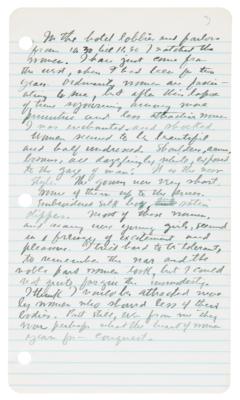 In the hotel lobbies and parlors
from 10.30 till 11.30 I watched the
women. I have just come from
the west, where I had been for two
years. Ordinarily women are fascin-
ating to me, but after this lapse
of time sojourning among more
primitive and less attractive ones
I was enchanted and shocked.
Women seemed to be beautiful
and half undressed. Shoulders, arms,
bosoms, all dazzlingly white, exposed
to the gaze of man! It is the new
style. The gowns were very short,
some of them up to the knees.
Embroidered silk hose, satin
slippers. Most of these women,
and many were young girls, seemed
in a frenzy of excitement and
pleasure. I tried hard to be tolerant,
to remember the war and the
noble part women took, but I could
not quite forgive the immodesty.
I think I would be attracted more
by women who showed less of their
bodies. But still, we from
were perhaps what the heart of women
yearn for – conquest.